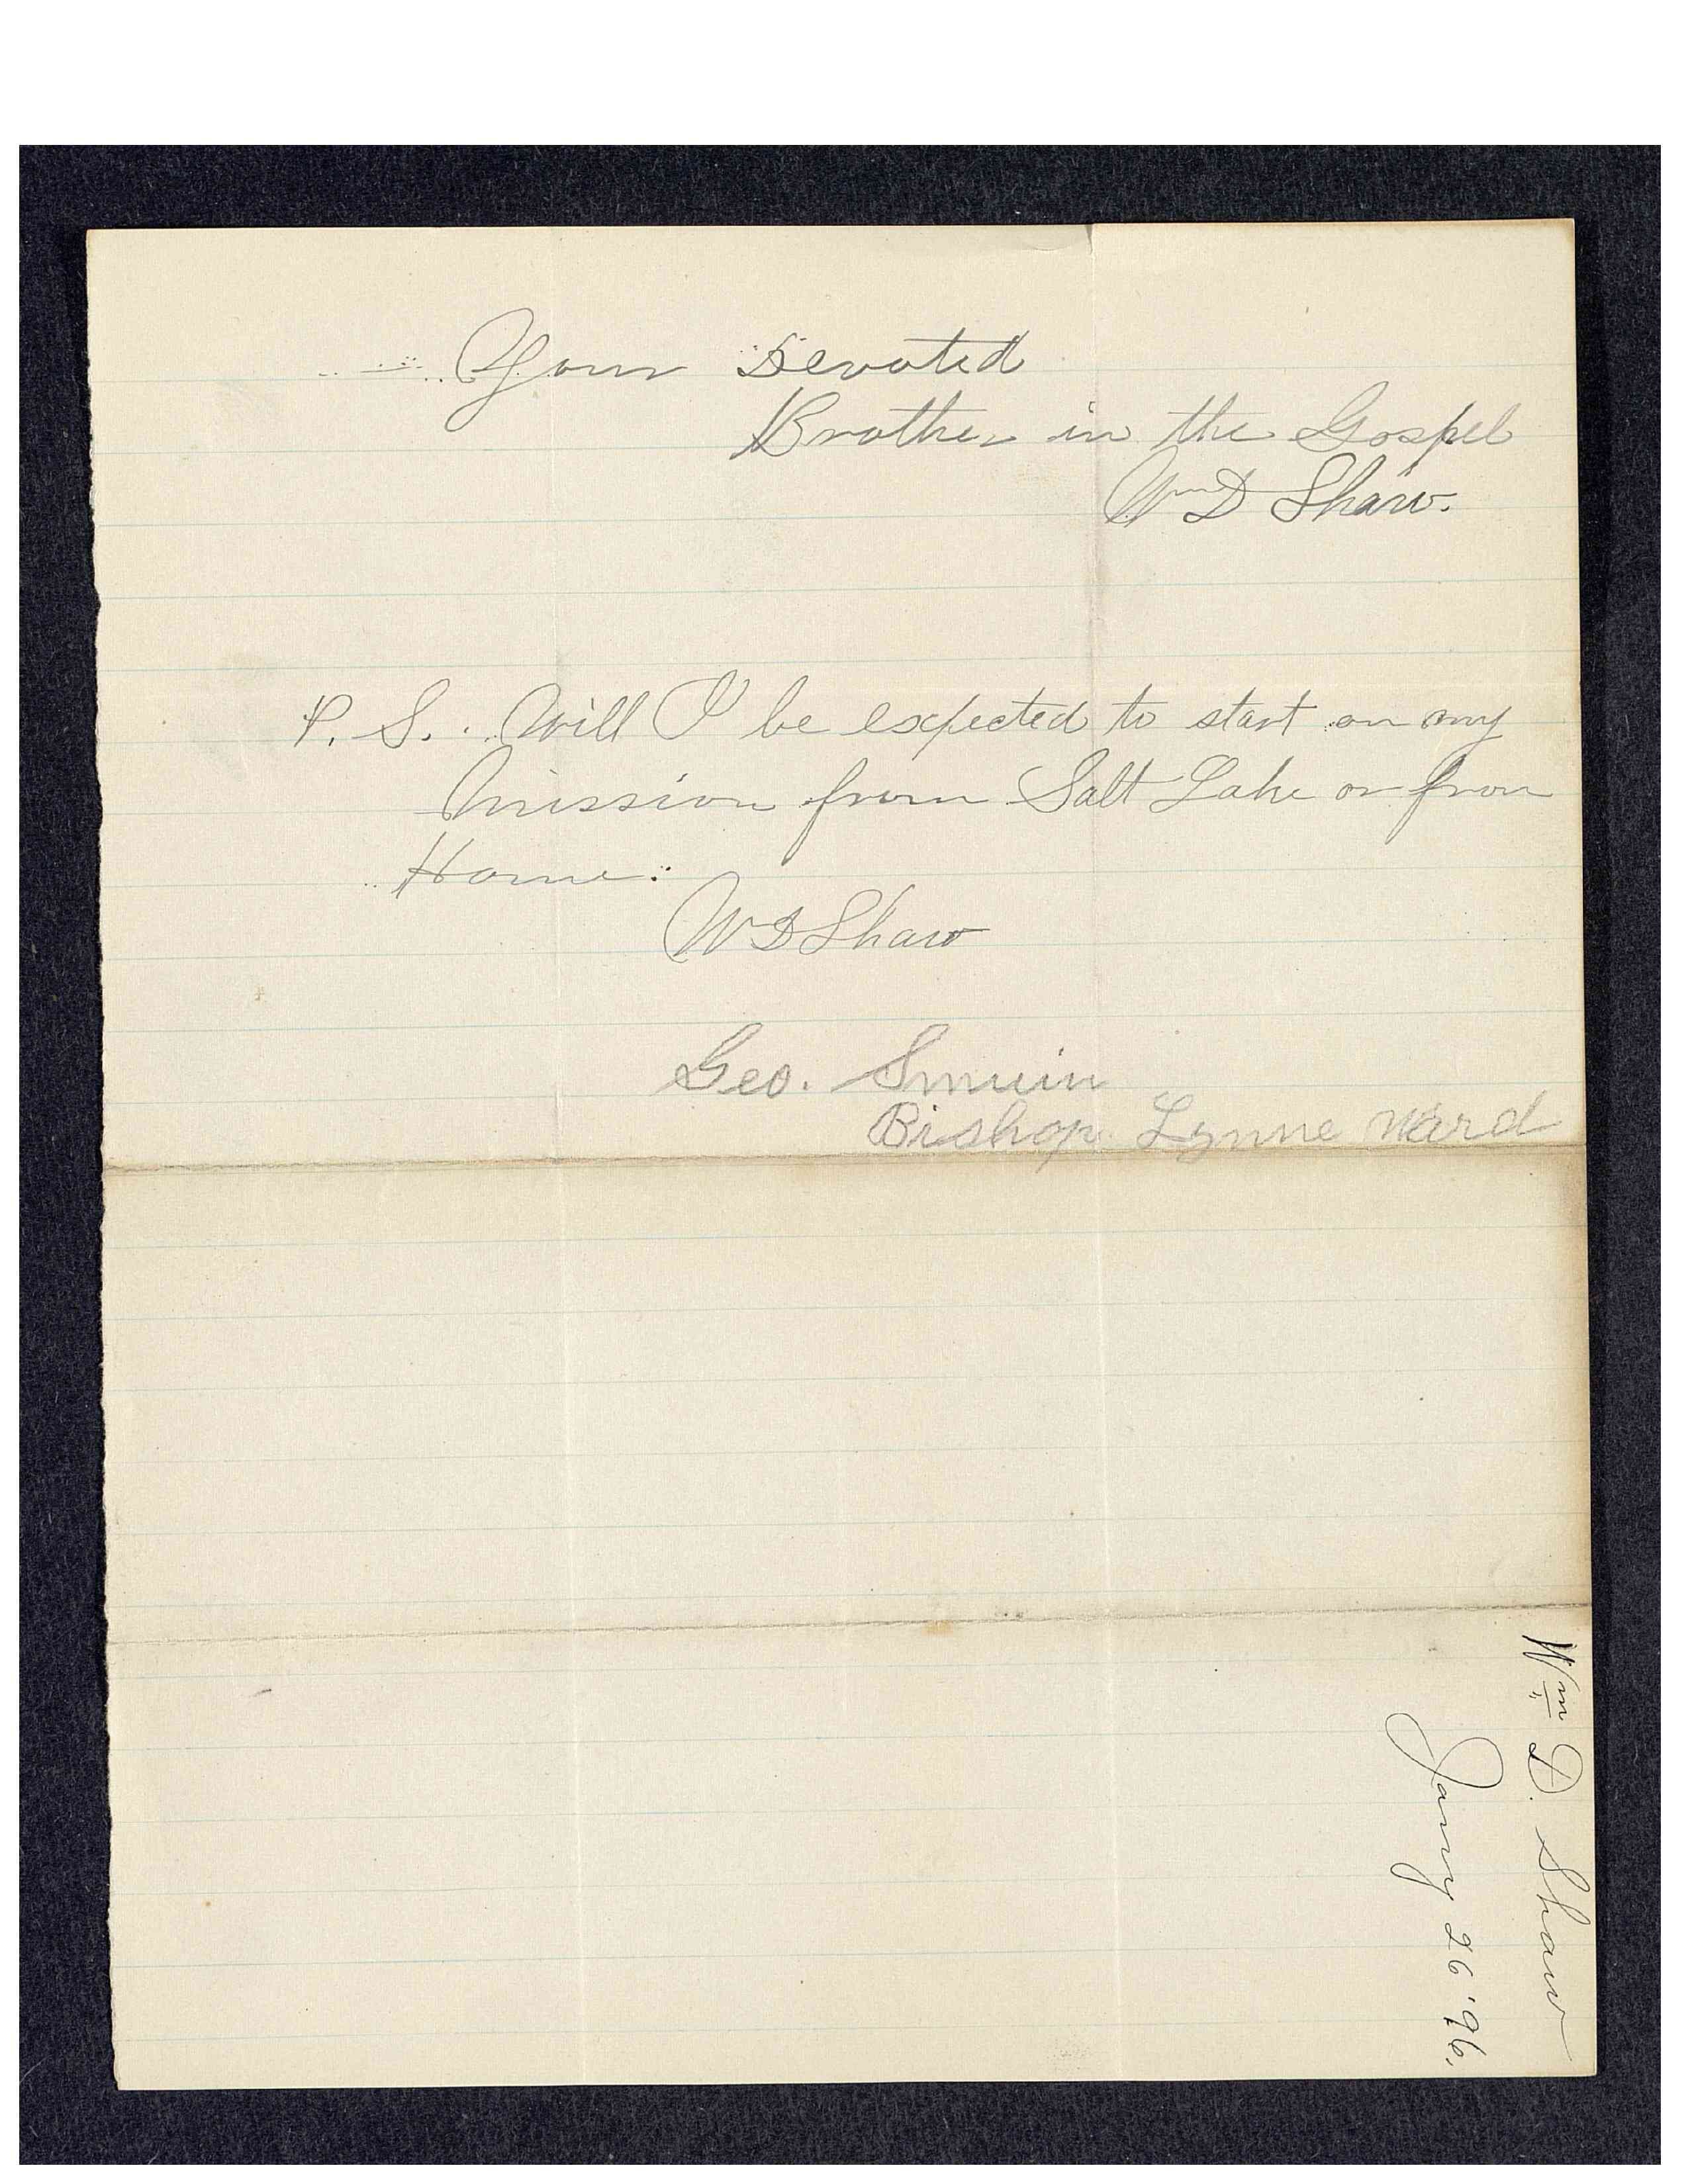 Your Devoted
Brother in the Gospel
Wm D Shaw.
P. S. Will I be expected to start on my
mission from Salt Lake or from
Home.
W D Shaw
Geo. Smuin
Bishop Lynne Ward
Wm D. Shaw
Jany 26 '96.